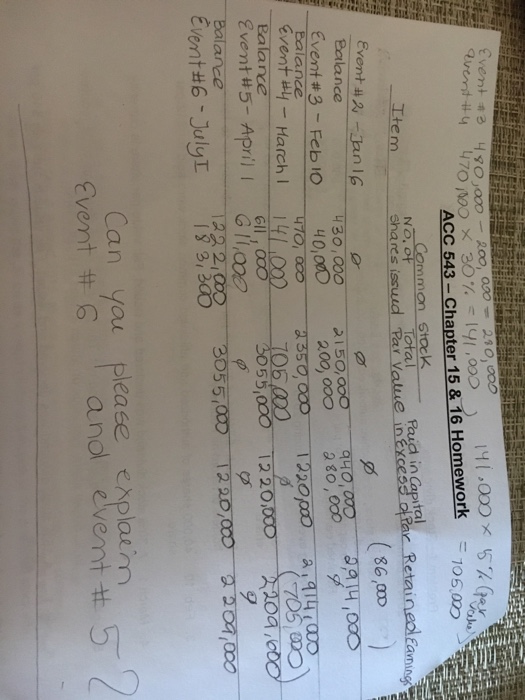 Event #3 480,000 - 200,000 = 280,000
Event #4 470,000 x 30% = 141,000) 141,000 x 5% (par value) = 705,000
ACC 543 – Chapter 15 & 16 Homework
Common Stock
Item No. of shares issued Total Par Value Paid in Capital in excess of Par Retained Earnings
Event #2 - Jan 16 ø ø ø (86,000)
Balance 430,000 2150,000 940,000 2,914,000
Event #3 - Feb 10 40,000 200,000 280,000 ø
Balance 470,000 2350,000 1220,000 2,914,000
Event #4 - March 1 141,000 705,000 ø (705,000)
Balance 611,000 3055,000 1220,000 2,209,000
Event #5 - April 1 611,000 ø ø ø
Balance 1222,000 3055,000 1220,000 2209,000
Event #6 - July 1 183,300
Can you please explain
Event #6 and event #5?